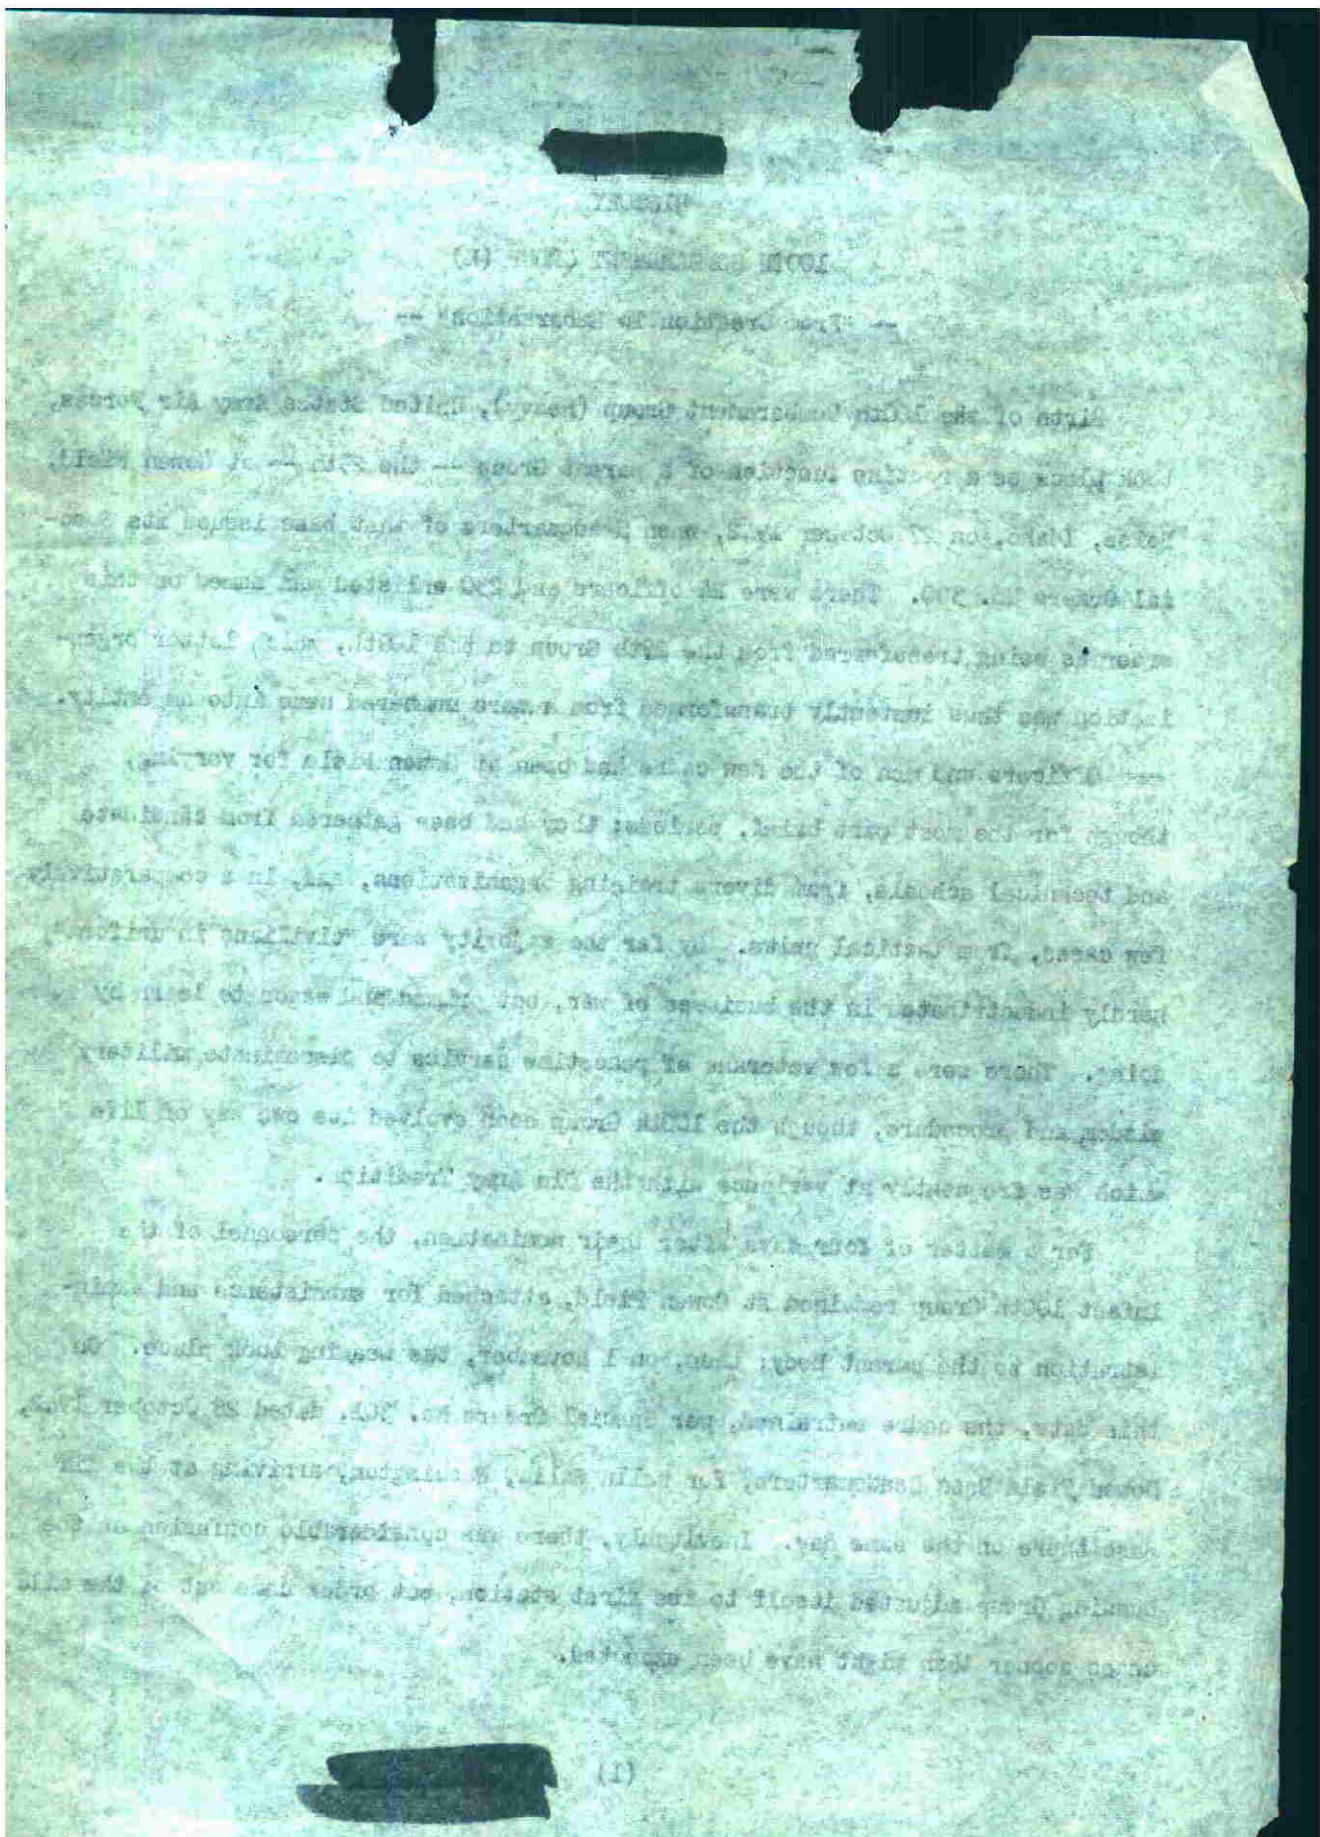 HISTORY
100TH BOMBARDMENT GROUP (H)
-- "From Creation to Embarkation" --
Birth of the 100th Bombardment Group (heavy), United States Army Air Forces,
took place as a routine function of a parent Group -- the 29th -- at Gowen Field,
Boise, Idaho, on 27 October 1942, when Headquarters of that base issued its Spec-
ial Orders No. 300. There were 24 officers and 230 enlisted men named on this
order as being transferred from the 29th Group to the 100th, which latter organ-
ization was thus instantly transformed from a mere numbered name into an entity.
Officers and men of the new cadre had been at Gowen Field for varying,
though for the most part brief, periods; they had been gathered from candidate
and technical schools, from divers training organizations, and, in a comparatively
few cases, from tactical units. By far the majority were "civilians in uniform",
hardly indoctrinated in the business of war, but and eager to learn by
doing. There were a few veterans of peacetime service to disseminate military
wisdom and procedure, though the 100th Group soon evolved its own way of life
which was frequently at variance with the Old Army Tradition.
For a matter of four days after their nomination, the personnel of the
infant 100th Group remained at Gowen Field, attached for subsistence and admin-
istration to the parent body; then, on 1 November, the weaning took place. On
this date, the cadre entrained, per Special Orders No. 304, dated 28 October 1942,
Gowen Field Base Headquarters, for Walla Walla, Washington, arriving at the
on the same day. Inevitably, there was considerable confusion as the
Group adjusted itself to its first station, but order came out of the
sooner than might have been expected.
(1)